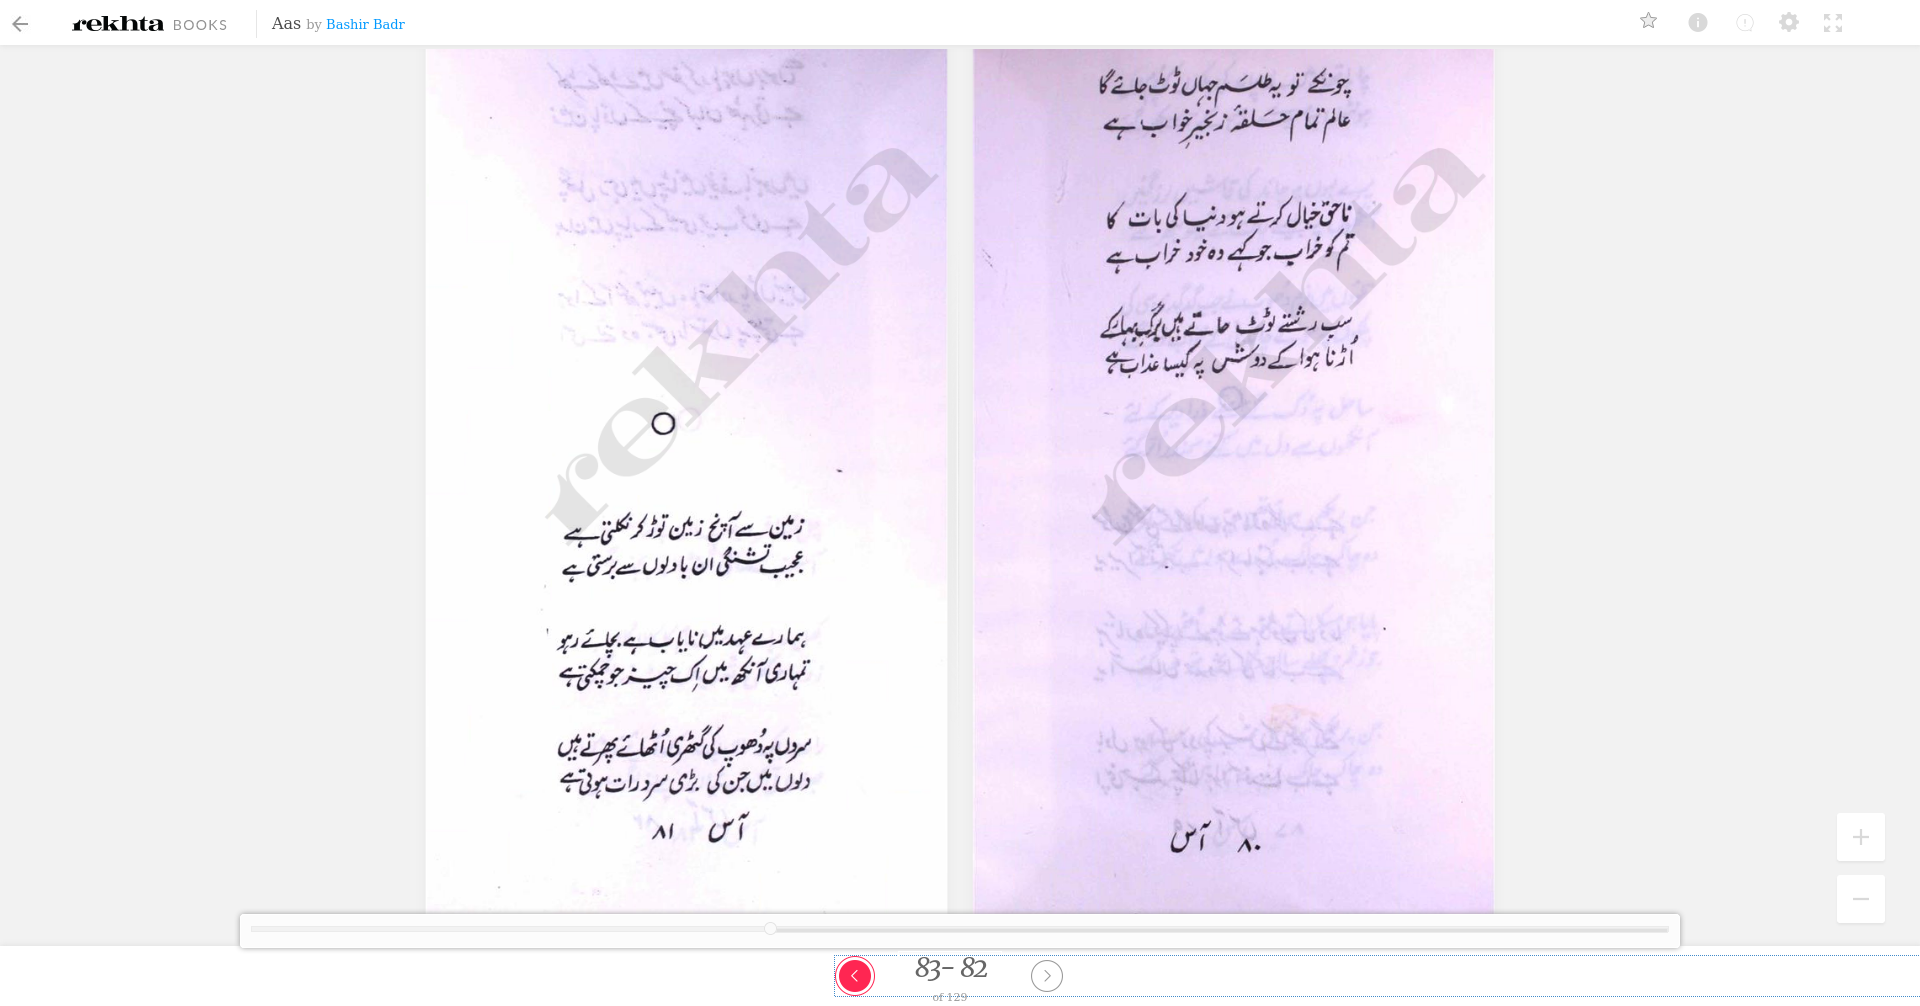 rekhta BOOKS
Aas by Bashir Badr
چونکے تو یہ طلسم جہاں ٹوٹ جائے گا
عالم تمام حلقۂ زنجیرِ خواب ہے
ناحق خیال کرتے ہو دنیا کی بات کا
تم کو خراب جو کہے وہ خود خراب ہے
سب رشتے ٹوٹ جاتے ہیں برگِ بہار کے
اُڑنا ہوا کے دوش پہ کیسا عذاب ہے
۸۰ آس
rekhta
زمین سے آنچ زمین توڑ کر نکلتی ہے
عجیب تشنگی ان بادلوں سے برستی ہے
ہمارے عہد میں نایاب ہے بچائے رہو
تمہاری آنکھ میں اِک چیز جو چمکتی ہے
سروں پہ دُھوپ کی گٹھری اُٹھائے پھرتے ہیں
دلوں میں جن کی بڑی سرد رات ہوتی ہے
آس ۸۱
rekhta
83- 82
of 129